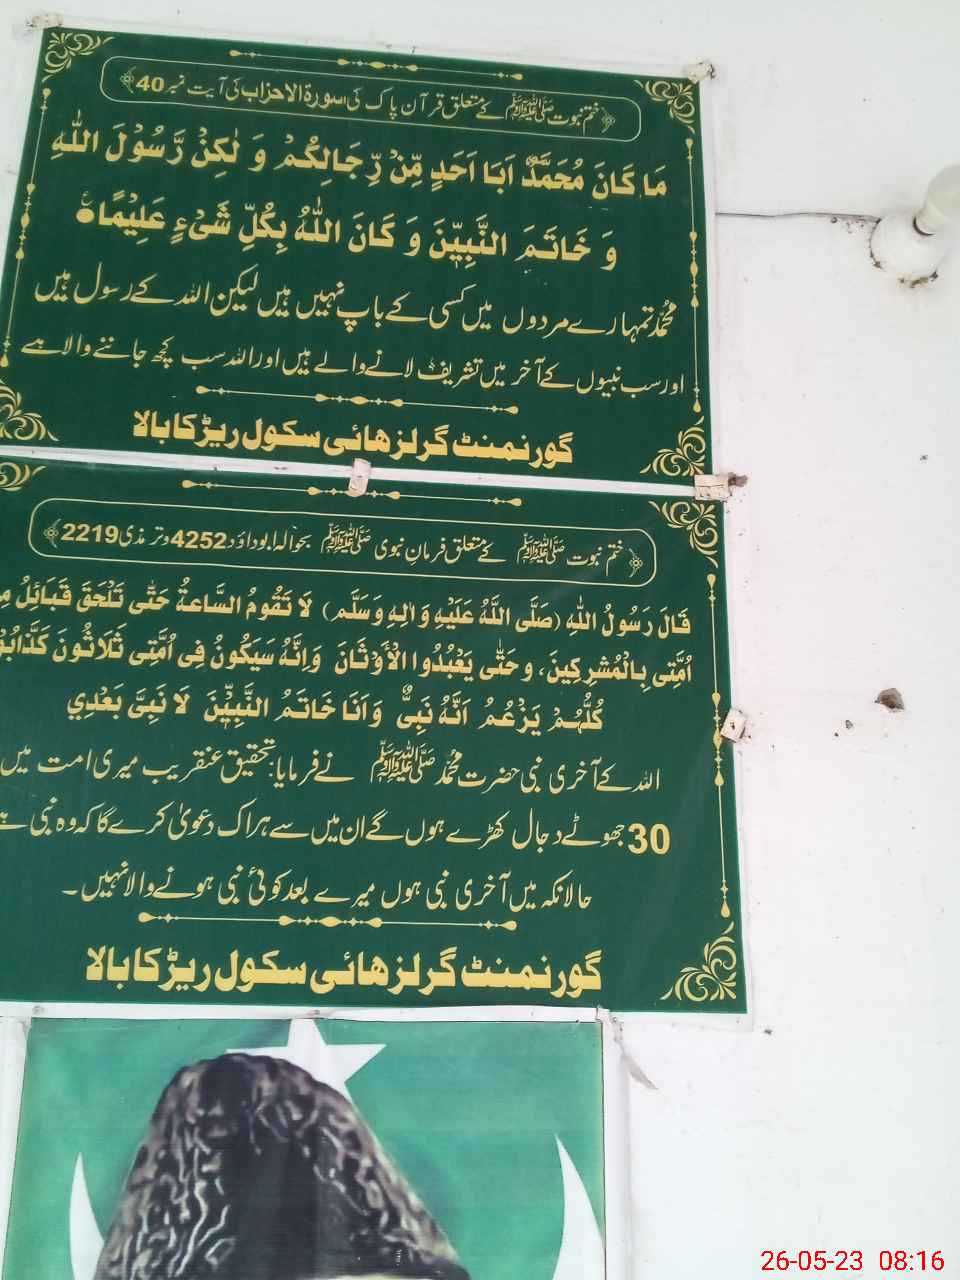 ختم نبوت ﷺ کے متعلق قرآن پاک کی سورۃ الاحزاب کی آیت نمبر 40
مَا كَانَ مُحَمَّدٌ اَبَآ اَحَدٍ مِّنْ رِّجَالِكُمْ وَ لٰكِنْ رَّسُوْلَ اللّٰهِ
وَ خَاتَمَ النَّبِیّٖنَ وَ كَانَ اللّٰهُ بِكُلِّ شَیْءٍ عَلِیْمًا
محمدؐ تمہارے مردوں میں کسی کے باپ نہیں ہیں لیکن اللہ کے رسول ہیں
اور سب نبیوں کے آخر میں تشریف لانے والے ہیں اور اللہ سب کچھ جاننے والا ہے
گورنمنٹ گرلز ھائی سکول ریڑکا بالا
ختم نبوت ﷺ کے متعلق فرمانِ نبوی ﷺ بحوالہ ابوداؤد 4252 و ترمذی 2219
قَالَ رَسُوْلُ اللّٰهِ (صَلَّى اللَّهُ عَلَيْهِ وَاٰلِهِ وَسَلَّم) لَا تَقُومُ السَّاعَةُ حَتّٰى تَلْحَقَ قَبَائِلُ
اُمَّتِى بِالْمُشرِكِينَ، وحَتّٰى يَعْبُدُوا الْأَوْثَانَ وَاِنَّهُ سَيَكُونُ فِى اُمَّتِى ثَلَاثُونَ
كُلُّهُمْ يَزْعُمُ اَنَّهُ نَبِىٌّ وَاَنَا خَاتَمُ النَّبِيّٖنَ لَا نَبِىَّ بَعْدِي
اللہ کے آخری نبی حضرت محمد ﷺ نے فرمایا: تحقیق عنقریب میری امت میں
30 جھوٹے دجال کھڑے ہوں گے ان میں سے ہر اک دعویٰ کرے گا کہ وہ نبی ہے
حالانکہ میں آخری نبی ہوں میرے بعد کوئی نبی ہونے والا نہیں۔
گورنمنٹ گرلز ھائی سکول ریڑکا بالا
26-05-23 08:16